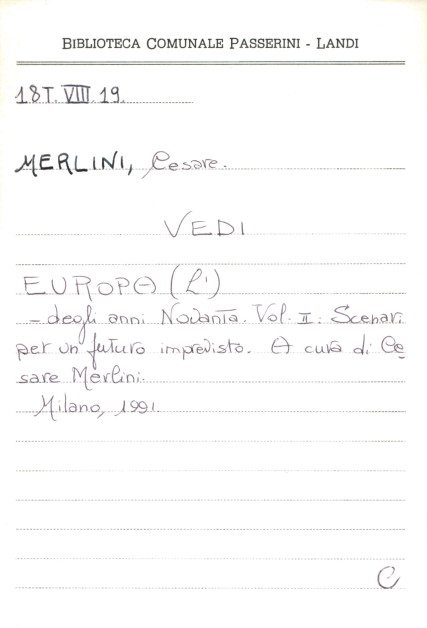 BIBLIOTECA COMUNALE PASSERINI - LANDI
18T. VIII. 19.
MERLINI, Cesare.
VEDI
EUROPA (L')
- degli anni Novanta. Vol. II: Scenari
per un futuro imprevisto. A cura di Ce
sare Merlini.
Milano, 1991.
C